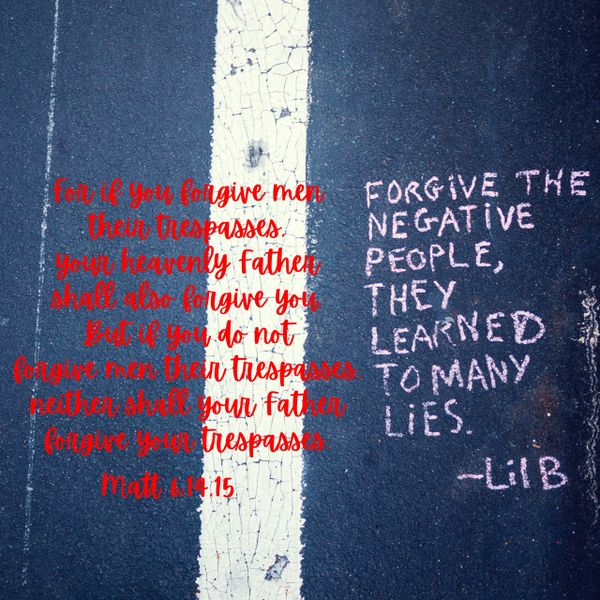 For if you forgive men
their trespasses.
your heavenly Father
shall also forgive you
But if you do not
forgive men their trespasses.
neither shall your Father
forgive your trespasses.
Matt 6.14.15
FORGIVE THE
NEGATIVE
PEOPLE,
THEY
LEARNED
TO MANY
LIES.
-Lil B